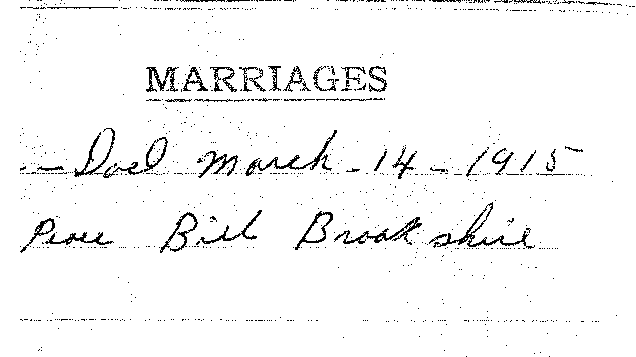 MARRIAGES
- Doel March - 14 - 1915
Peace Bill Brookshire